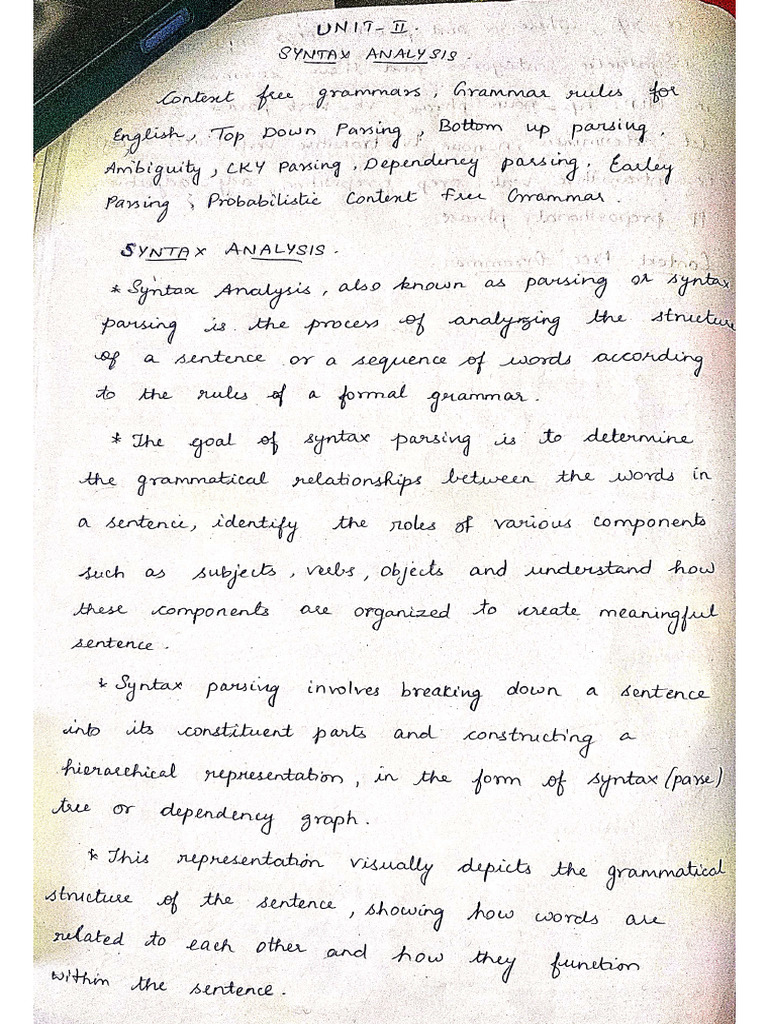 UNIT-II.
SYNTAX ANALYSIS.
Context free grammars, Grammar rules for
English, Top Down Parsing, Bottom up parsing,
Ambiguity, CKY Parsing, Dependency parsing, Earley
Parsing, Probabilistic Context Free Grammar.
SYNTAX ANALYSIS.
* Syntax Analysis, also known as parsing or syntax
parsing is the process of analyzing the structure
of a sentence or a sequence of words according
to the rules of a formal grammar.
* The goal of syntax parsing is to determine
the grammatical relationships between the words in
a sentence, identify the roles of various components
such as subjects, verbs, objects and understand how
these components are organized to create meaningful
sentence.
* Syntax parsing involves breaking down a sentence
into its constituent parts and constructing a
hierarchical representation, in the form of syntax (parse)
tree or dependency graph.
* This representation visually depicts the grammatical
structure of the sentence, showing how words are
related to each other and how they function
within the sentence.